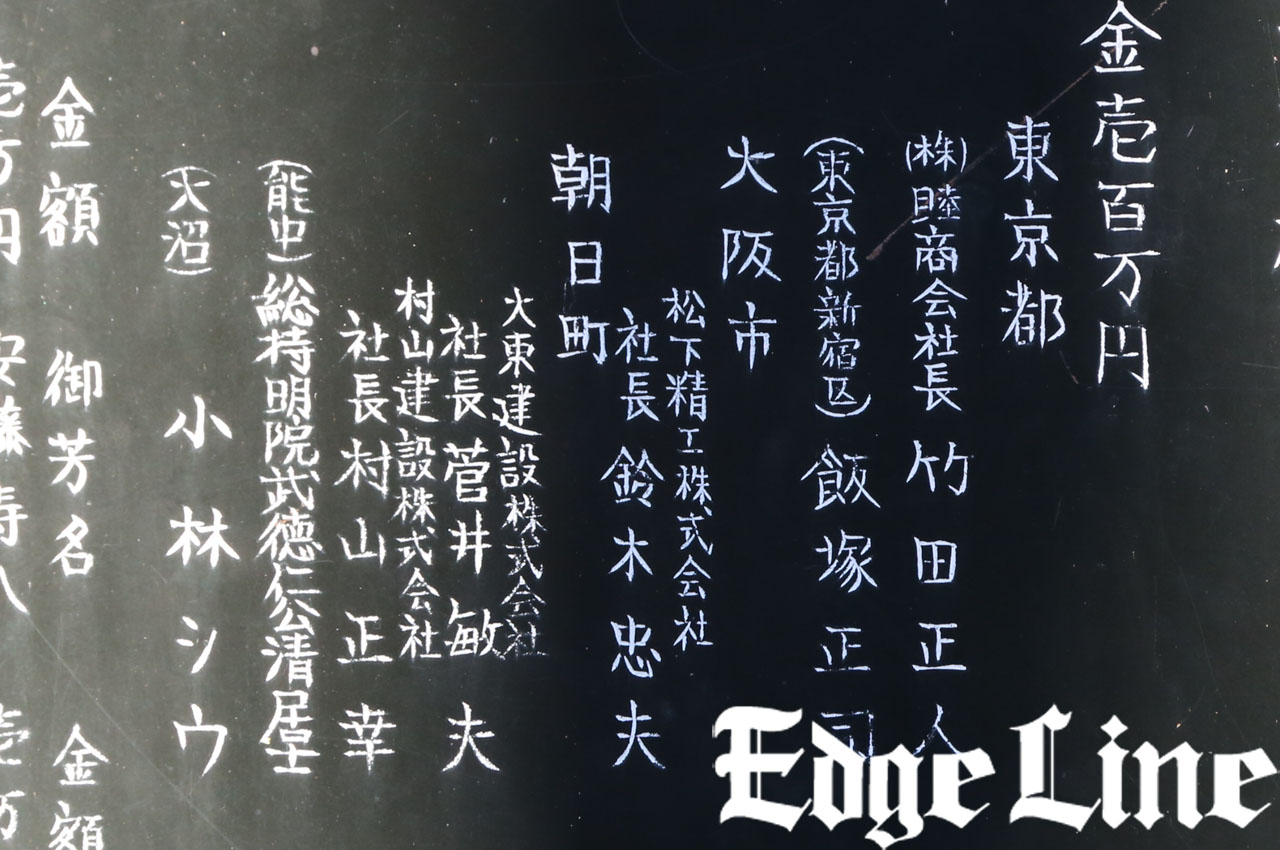 金壱百万円
東京都
(株)睦商会社長 竹田正人
(東京都新宿区)飯塚正司
大阪市
松下精工株式会社
社長 鈴木忠夫
朝日町
大東建設株式会社
社長 菅井敏夫
村山建設株式会社
社長 村山正幸
(能中)総持明院武徳仁公清居士
(大沼) 小林シウ
金額 御芳名 金額
壱万円 安藤寿八 壱万
Edge Line